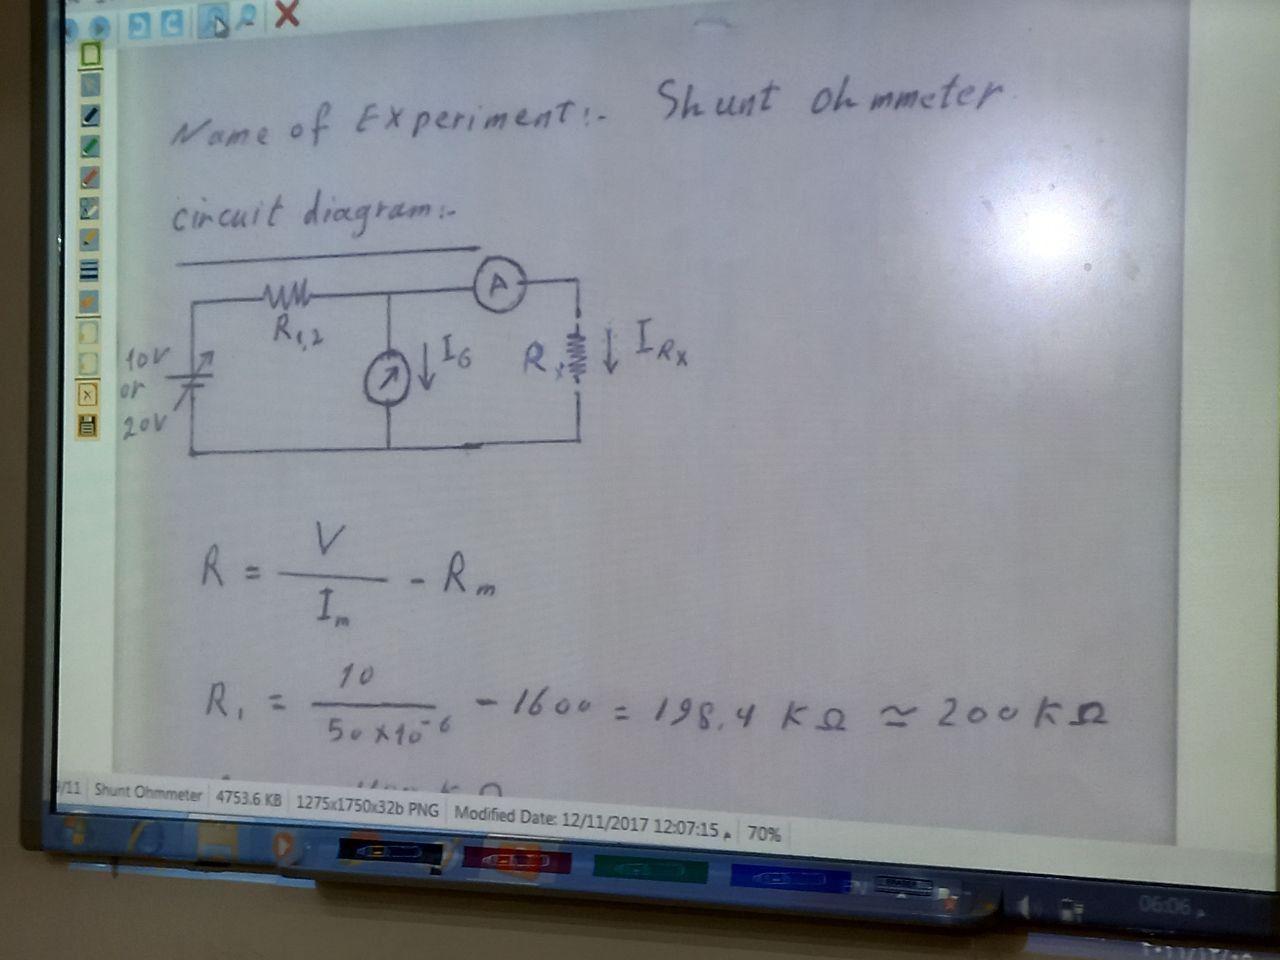 Name of Experiment:- Shunt Ohmmeter
circuit diagram:-
A
R1,2
10V
or
20V
IG
Rx
IRx
R = V / Im - Rm
R1 = 10 / 50x10-6 - 1600 = 198.4 KΩ ≃ 200KΩ
KΩ
/11 Shunt Ohmmeter 4753.6 KB 1275x1750x32b PNG Modified Date: 12/11/2017 12:07:15 م 70%
06:06 م